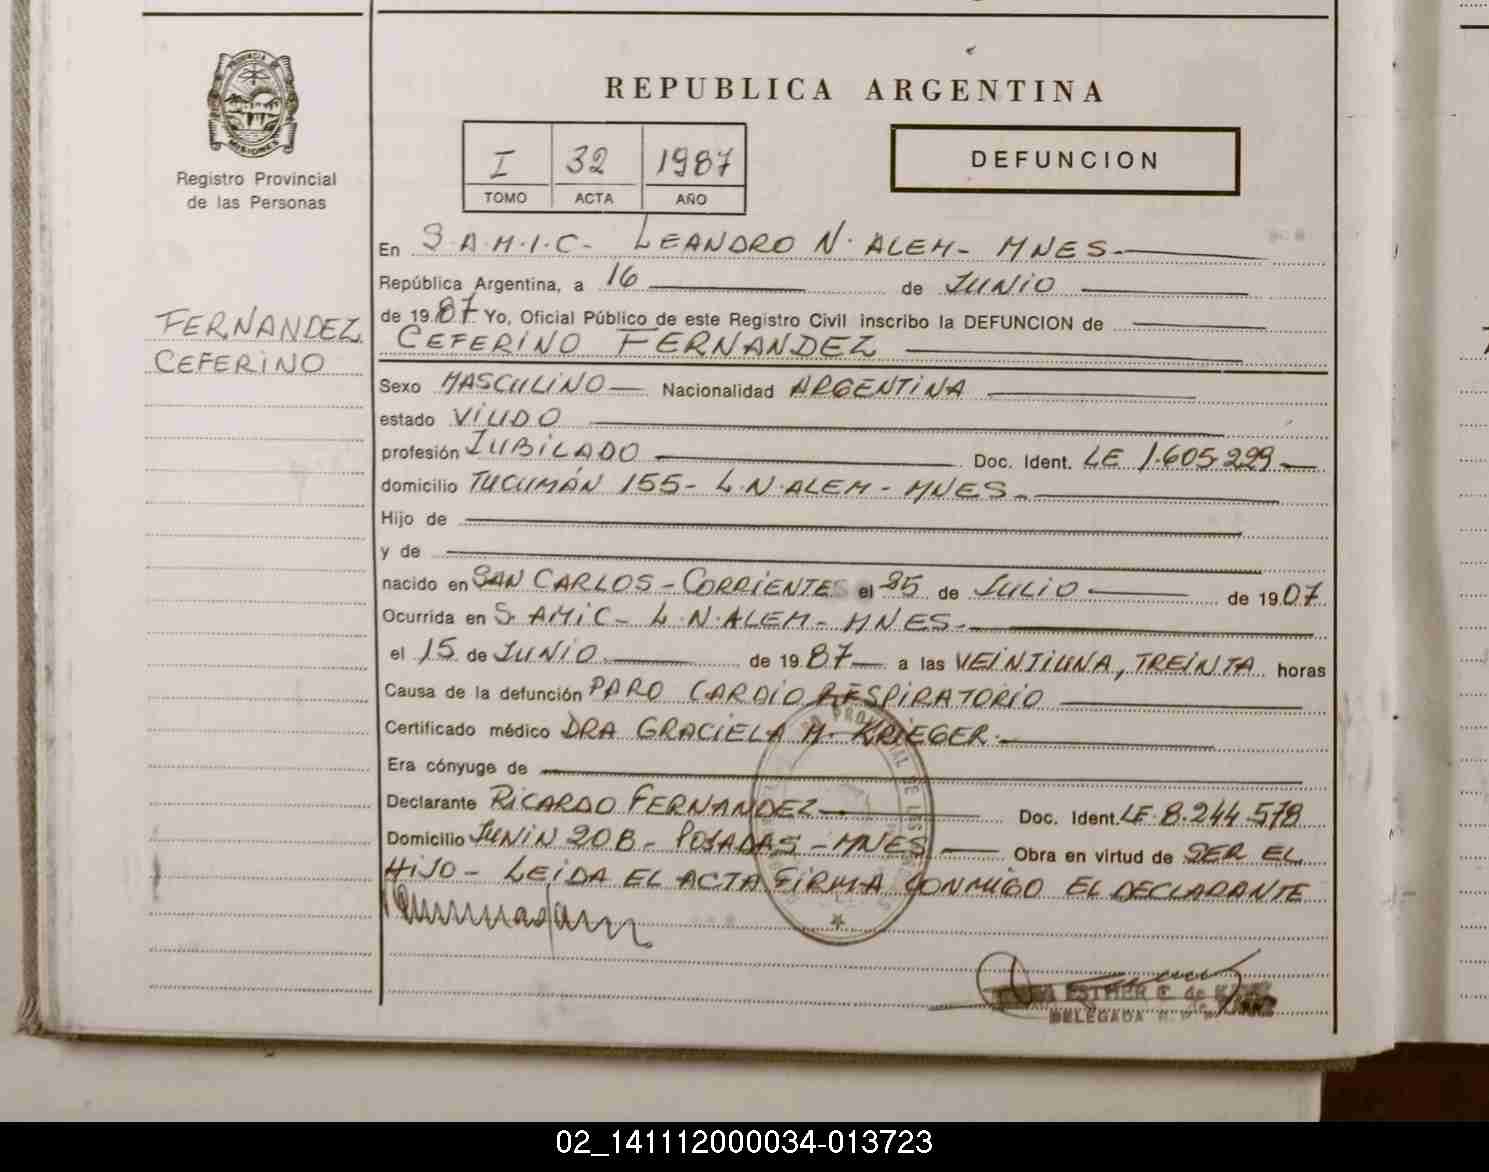 REPUBLICA ARGENTINA
PROVINCIA DE MISIONES
Registro Provincial
de las Personas
I 32 1987
TOMO ACTA AÑO
DEFUNCION
FERNANDEZ
CEFERINO
En S.A.M.I.C- LEANDRO N. ALEM- MNES-
República Argentina, a 16 de JUNIO
de 1987 Yo, Oficial Público de este Registro Civil inscribo la DEFUNCION de
CEFERINO FERNANDEZ
Sexo MASCULINO Nacionalidad ARGENTINA
estado VIUDO
profesión JUBILADO Doc. Ident. LE 1.605.299
domicilio TUCUMÁN 155- L.N.ALEM- MNES-
Hijo de
y de
nacido en SAN CARLOS-CORRIENTES el 25 de JULIO de 1907
Ocurrida en S.AMIC- L.N.ALEM- MNES-
el 15 de JUNIO de 1987 a las VEINTIUNA, TREINTA horas
Causa de la defunción PARO CARDIO RESPIRATORIO
Certificado médico DRA GRACIELA M. KRIEGER.
Era cónyuge de
Declarante RICARDO FERNANDEZ Doc. Ident. LE 8.244.578
Domicilio JUNIN 208- POSADAS-MNES Obra en virtud de SER EL
HIJO- LEIDA EL ACTA FIRMA CONMIGO EL DECLARANTE
ESTHER E. de
DELEGADA
02_141112000034-013723